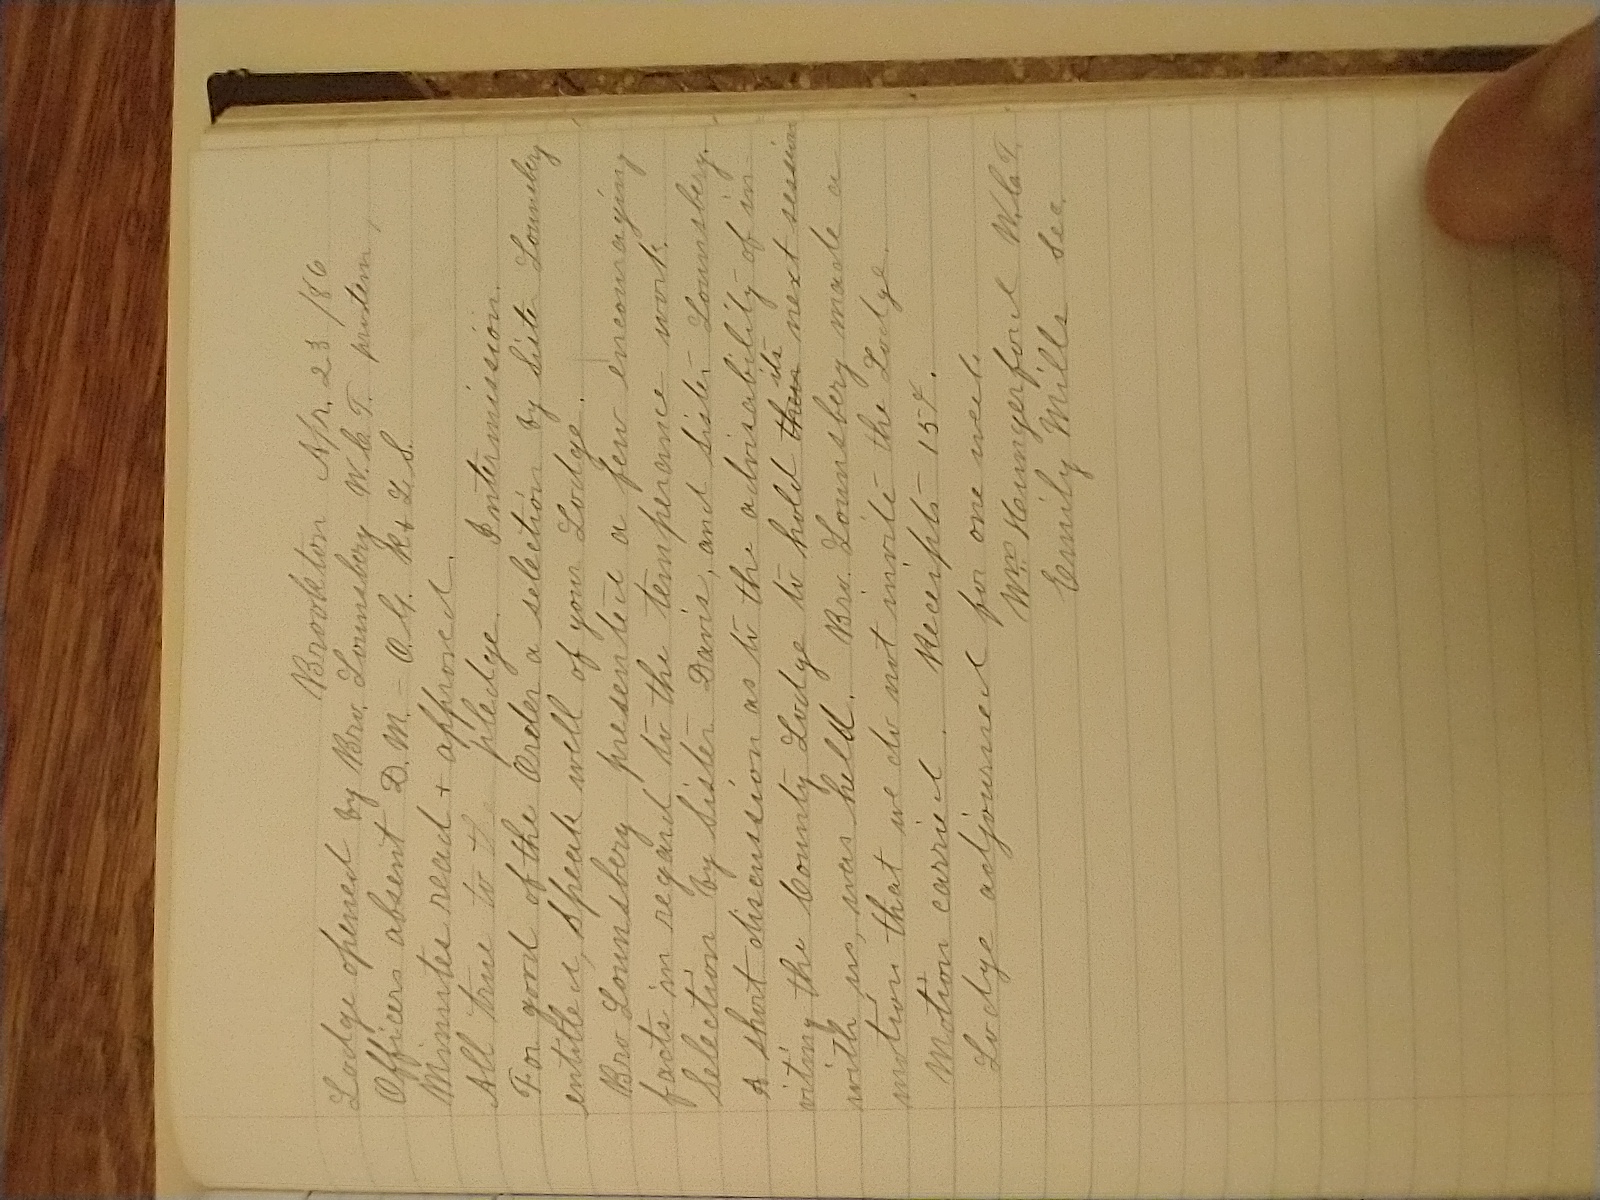 Brookton Apr. 23 /86
Lodge opened by Bro. Lounsbery W.C.T. protem,
Officers absent D.M. - O.G. R + L S.
Minutes read + approved.
All true to the pledge. Intermission.
For good of the Order a selection by Sister Lounsbery
entitled, Speak well of your Lodge.
Bro Lounsbery presented a few encouraging
facts in regard to the temperance work.
Selection by Sister Davis, and Sister Lounsbery.
A short discussion as to the advisability of in
viting the County Lodge to hold their its next session
with us, was held. Bro. Lounsbery made a
motion that we do not invite the Lodge.
Motion carried. Receipts 15¢.
Lodge adjourned for one week
Wm Hungerford W.C.T.
Emily Mills Sec.